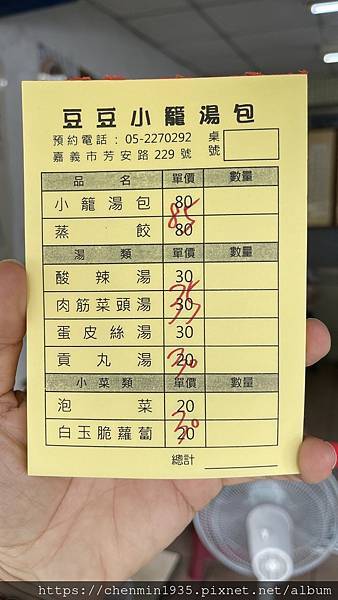 豆豆小籠湯包
預約電話：05-2270292
嘉義市芳安路229號
桌號
品名 單價 數量
小籠湯包 80
85
蒸餃 80
湯類 單價 數量
酸辣湯 30
肉筋菜頭湯 30
35
蛋皮絲湯 30
貢丸湯 20
30
小菜類 單價 數量
泡菜 20
白玉脆蘿蔔 20
30
總計
https://chenmin1935.pixnet.net/album